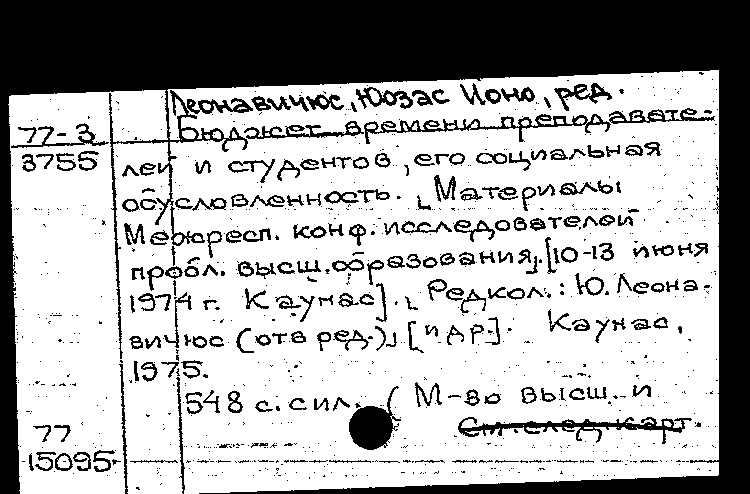 Леонавичюс, Юозас Ионо, ред.
77-3 Бюджет времени преподавате-
3755 лей и студентов, его социальная
обусловленность. [Материалы
Межресп. конф. исследователей
пробл. высш. образования]. [10-13 июня
1974 г. Каунас]. [Редкол.: Ю. Леона-
вичюс (отв ред.)] [и др.]. Каунас,
1975.
548 с. с ил. (М-во высш. и
77 См. след. карт.
15095